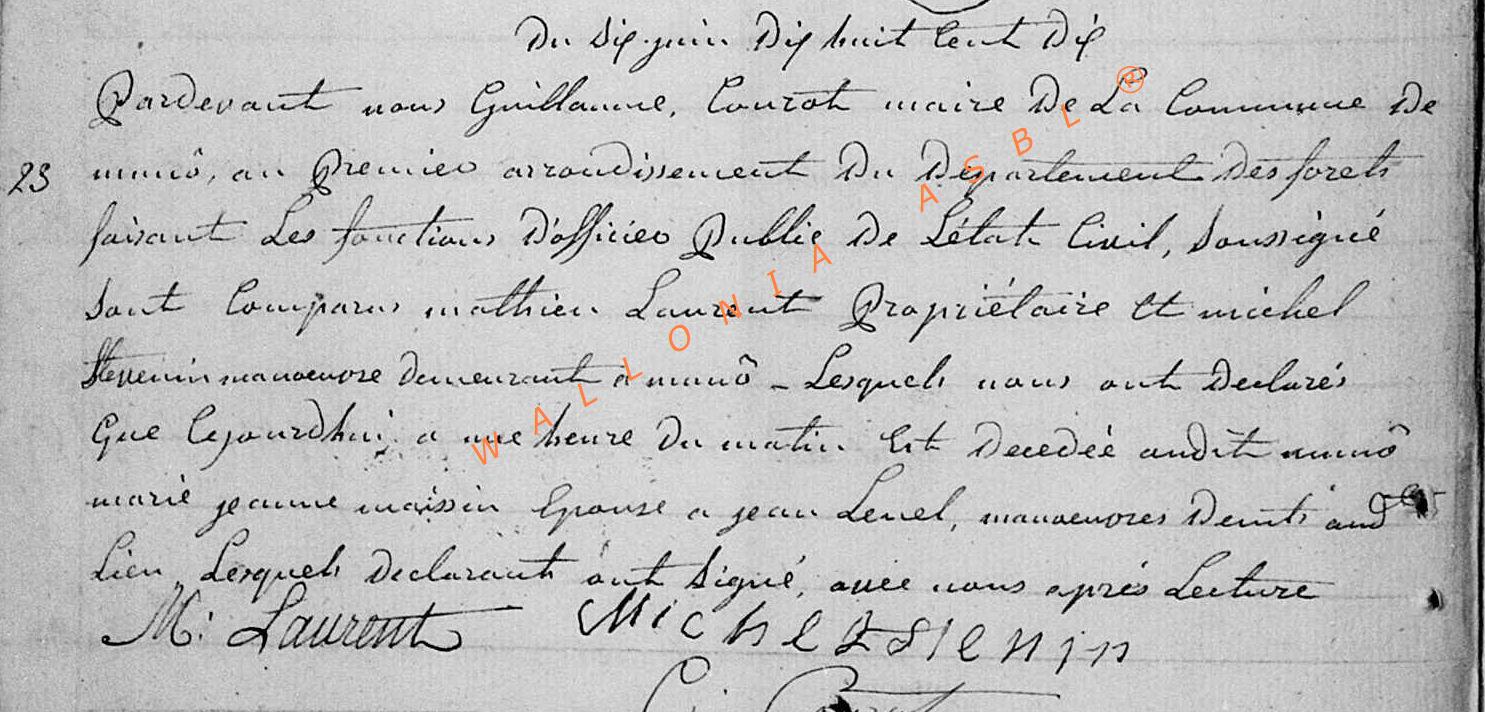 Du Six juin Dix huit Cent Dix
Pardevant nous Guillaume, Courot maire De La Commune De
23 munô, au Premier arrondissement Du Departement Des forets
faisant Les fonctions D'officier Public De L'état Civil, Soussigné
Sont Comparus mathieu Laurent Propriétaire Et michel
Stevenin manoeuvre Demeurant a munô - Lesquels nous ont Declarés
Que Cejourdhui a une heure Du matin Est Decedée audit munô
marie jeanne maissin Epouse a jean Lenel, manoeuvres Demts aud
Lieu, Lesquels Declarants ont Signé, avec nous après Lecture
M: Laurent MicheL
WALLONIA ASBL ®